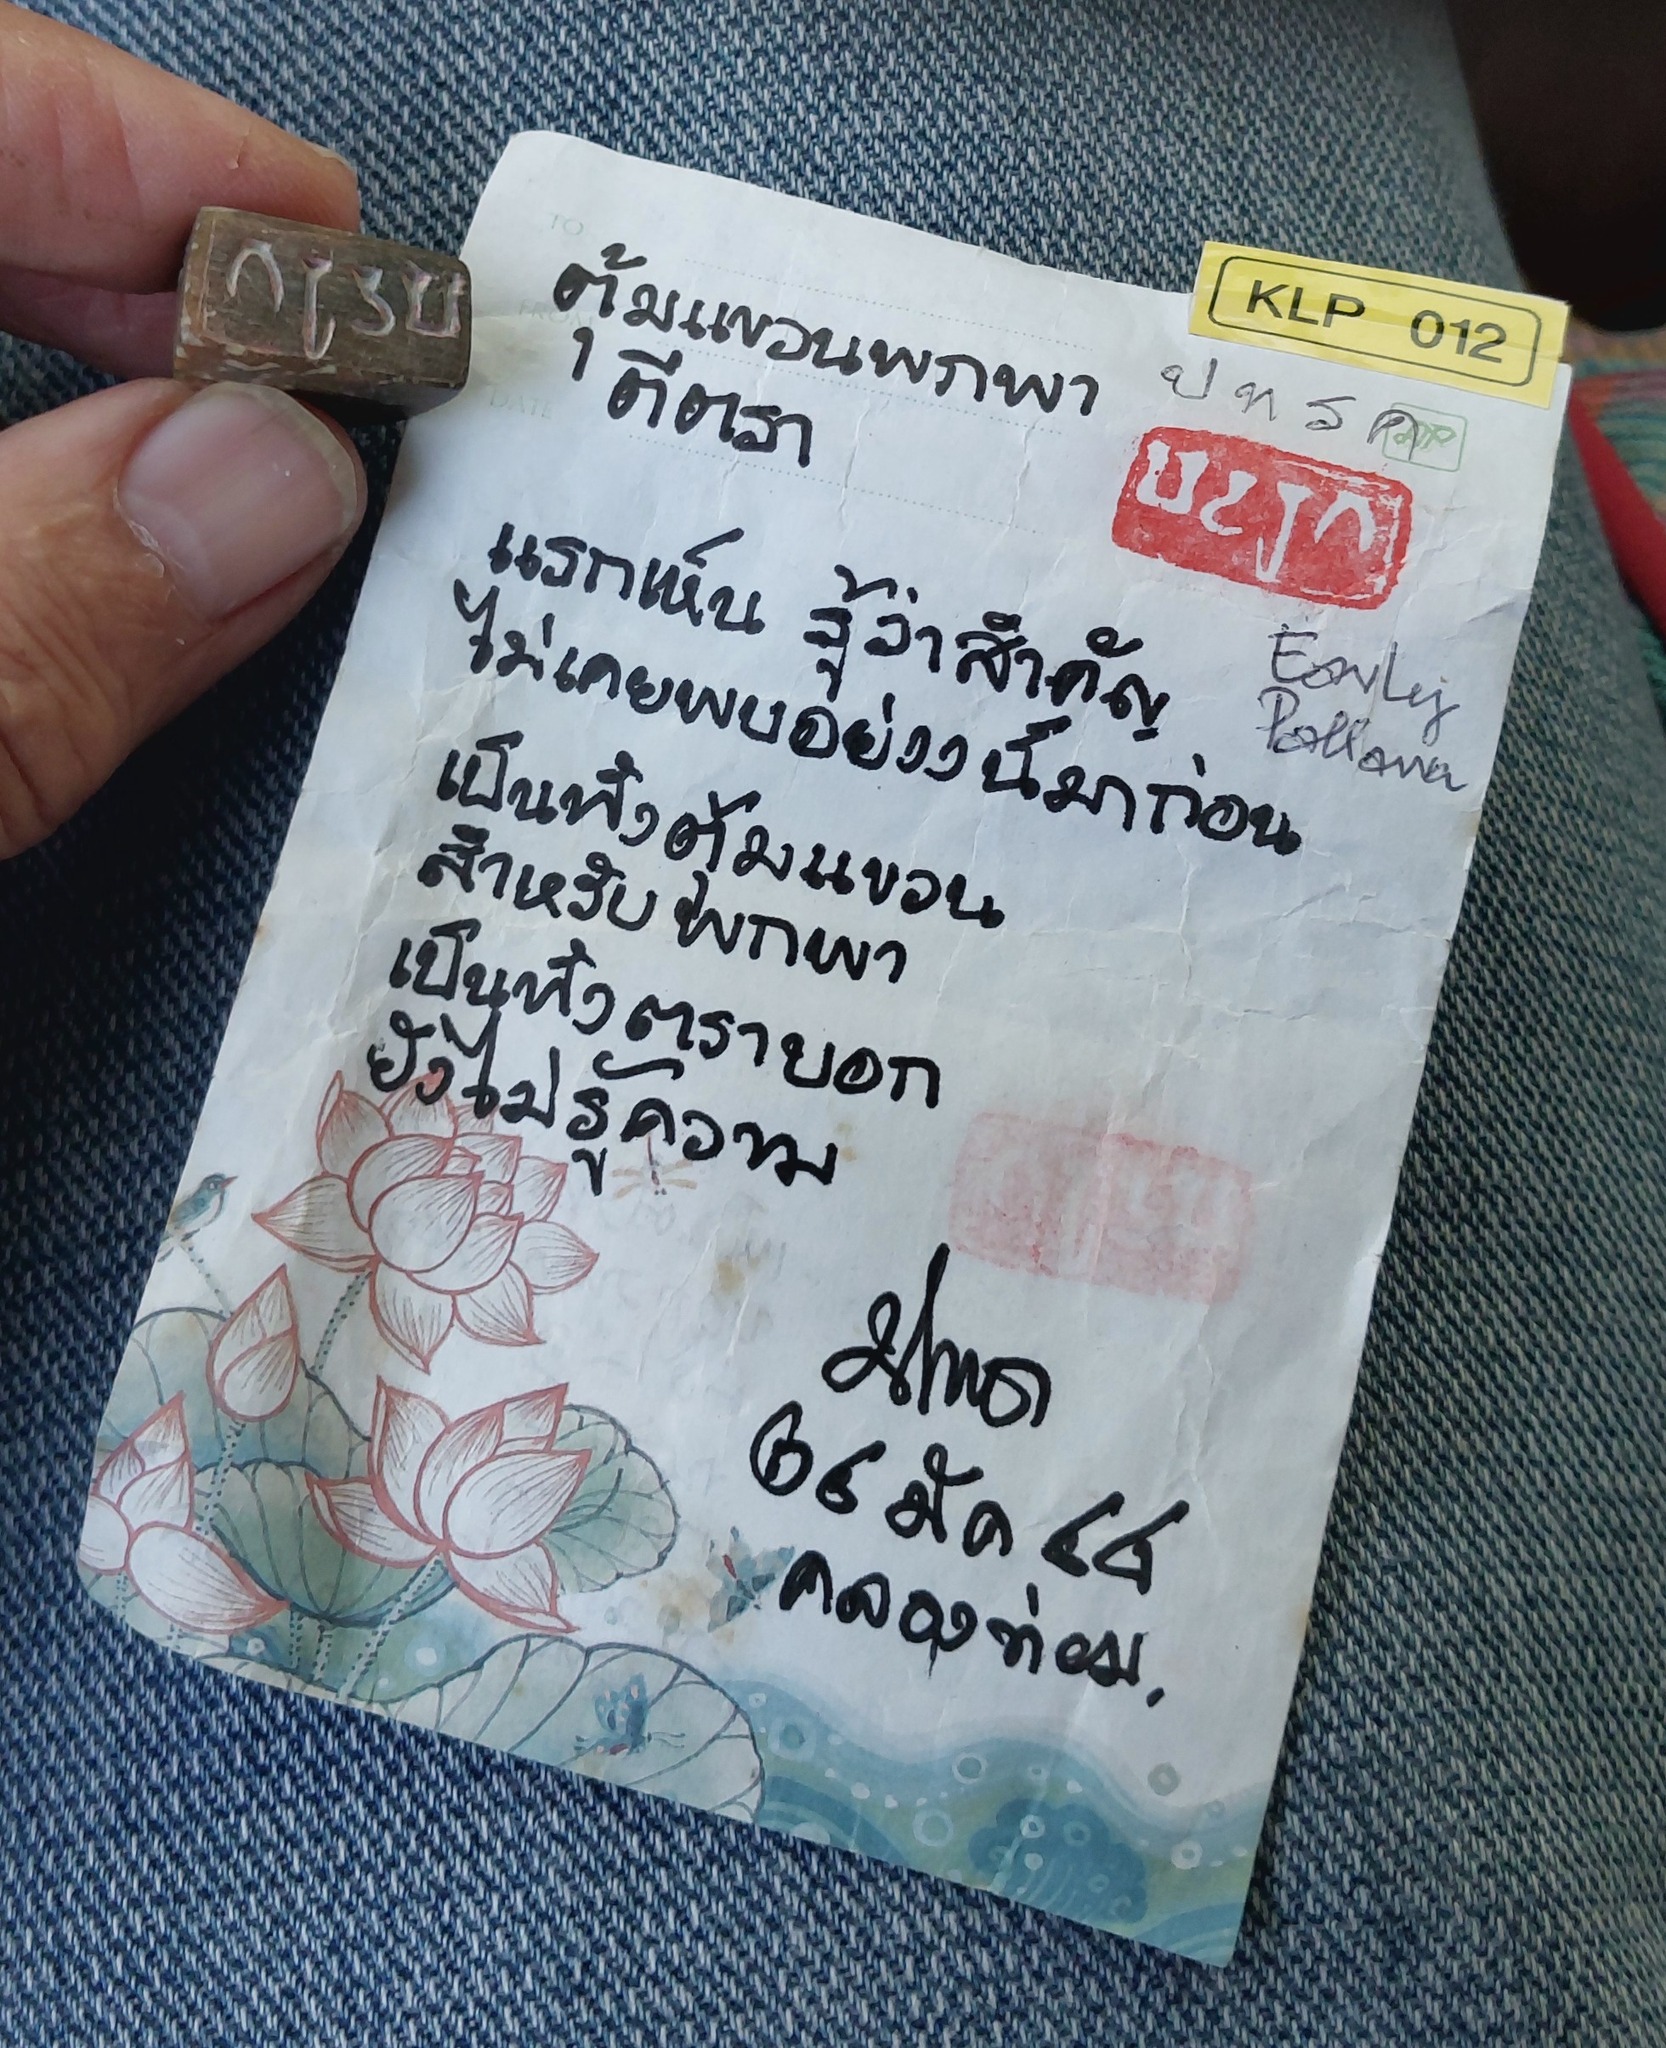 KLP 012
TO
FROM
DATE
ตุ้มแขวนพกพา
ตีตรา
ปทรค
แรกเห็น รู้ว่าสำคัญ
Early
Pallava
ไม่เคยพบอย่างนี้มาก่อน
เป็นทั้งตุ้มแขวน
สำหรับพกพา
เป็นทั้งตราบอก
ยังไม่รู้ความ
๒๖ มีค ๔๔
คลองท่อม.